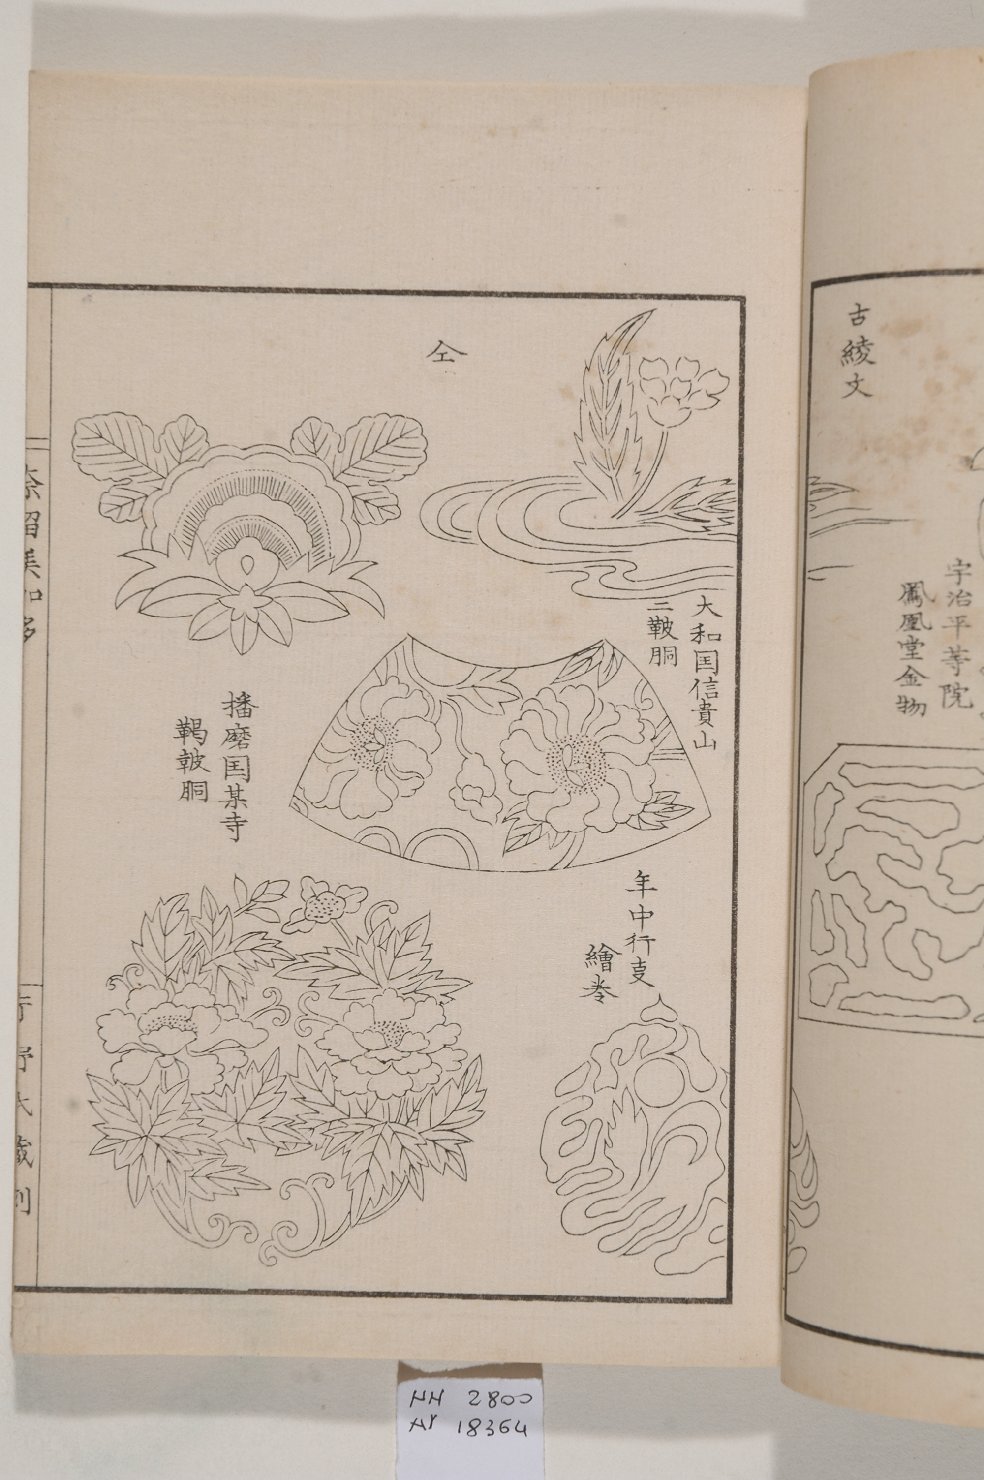 古綾文
宇治平等院
鳳凰堂金物
仝
大和国信貴山
二皷胴
播磨国某寺
鞨皷胴
年中行支
繪巻
HH 2800